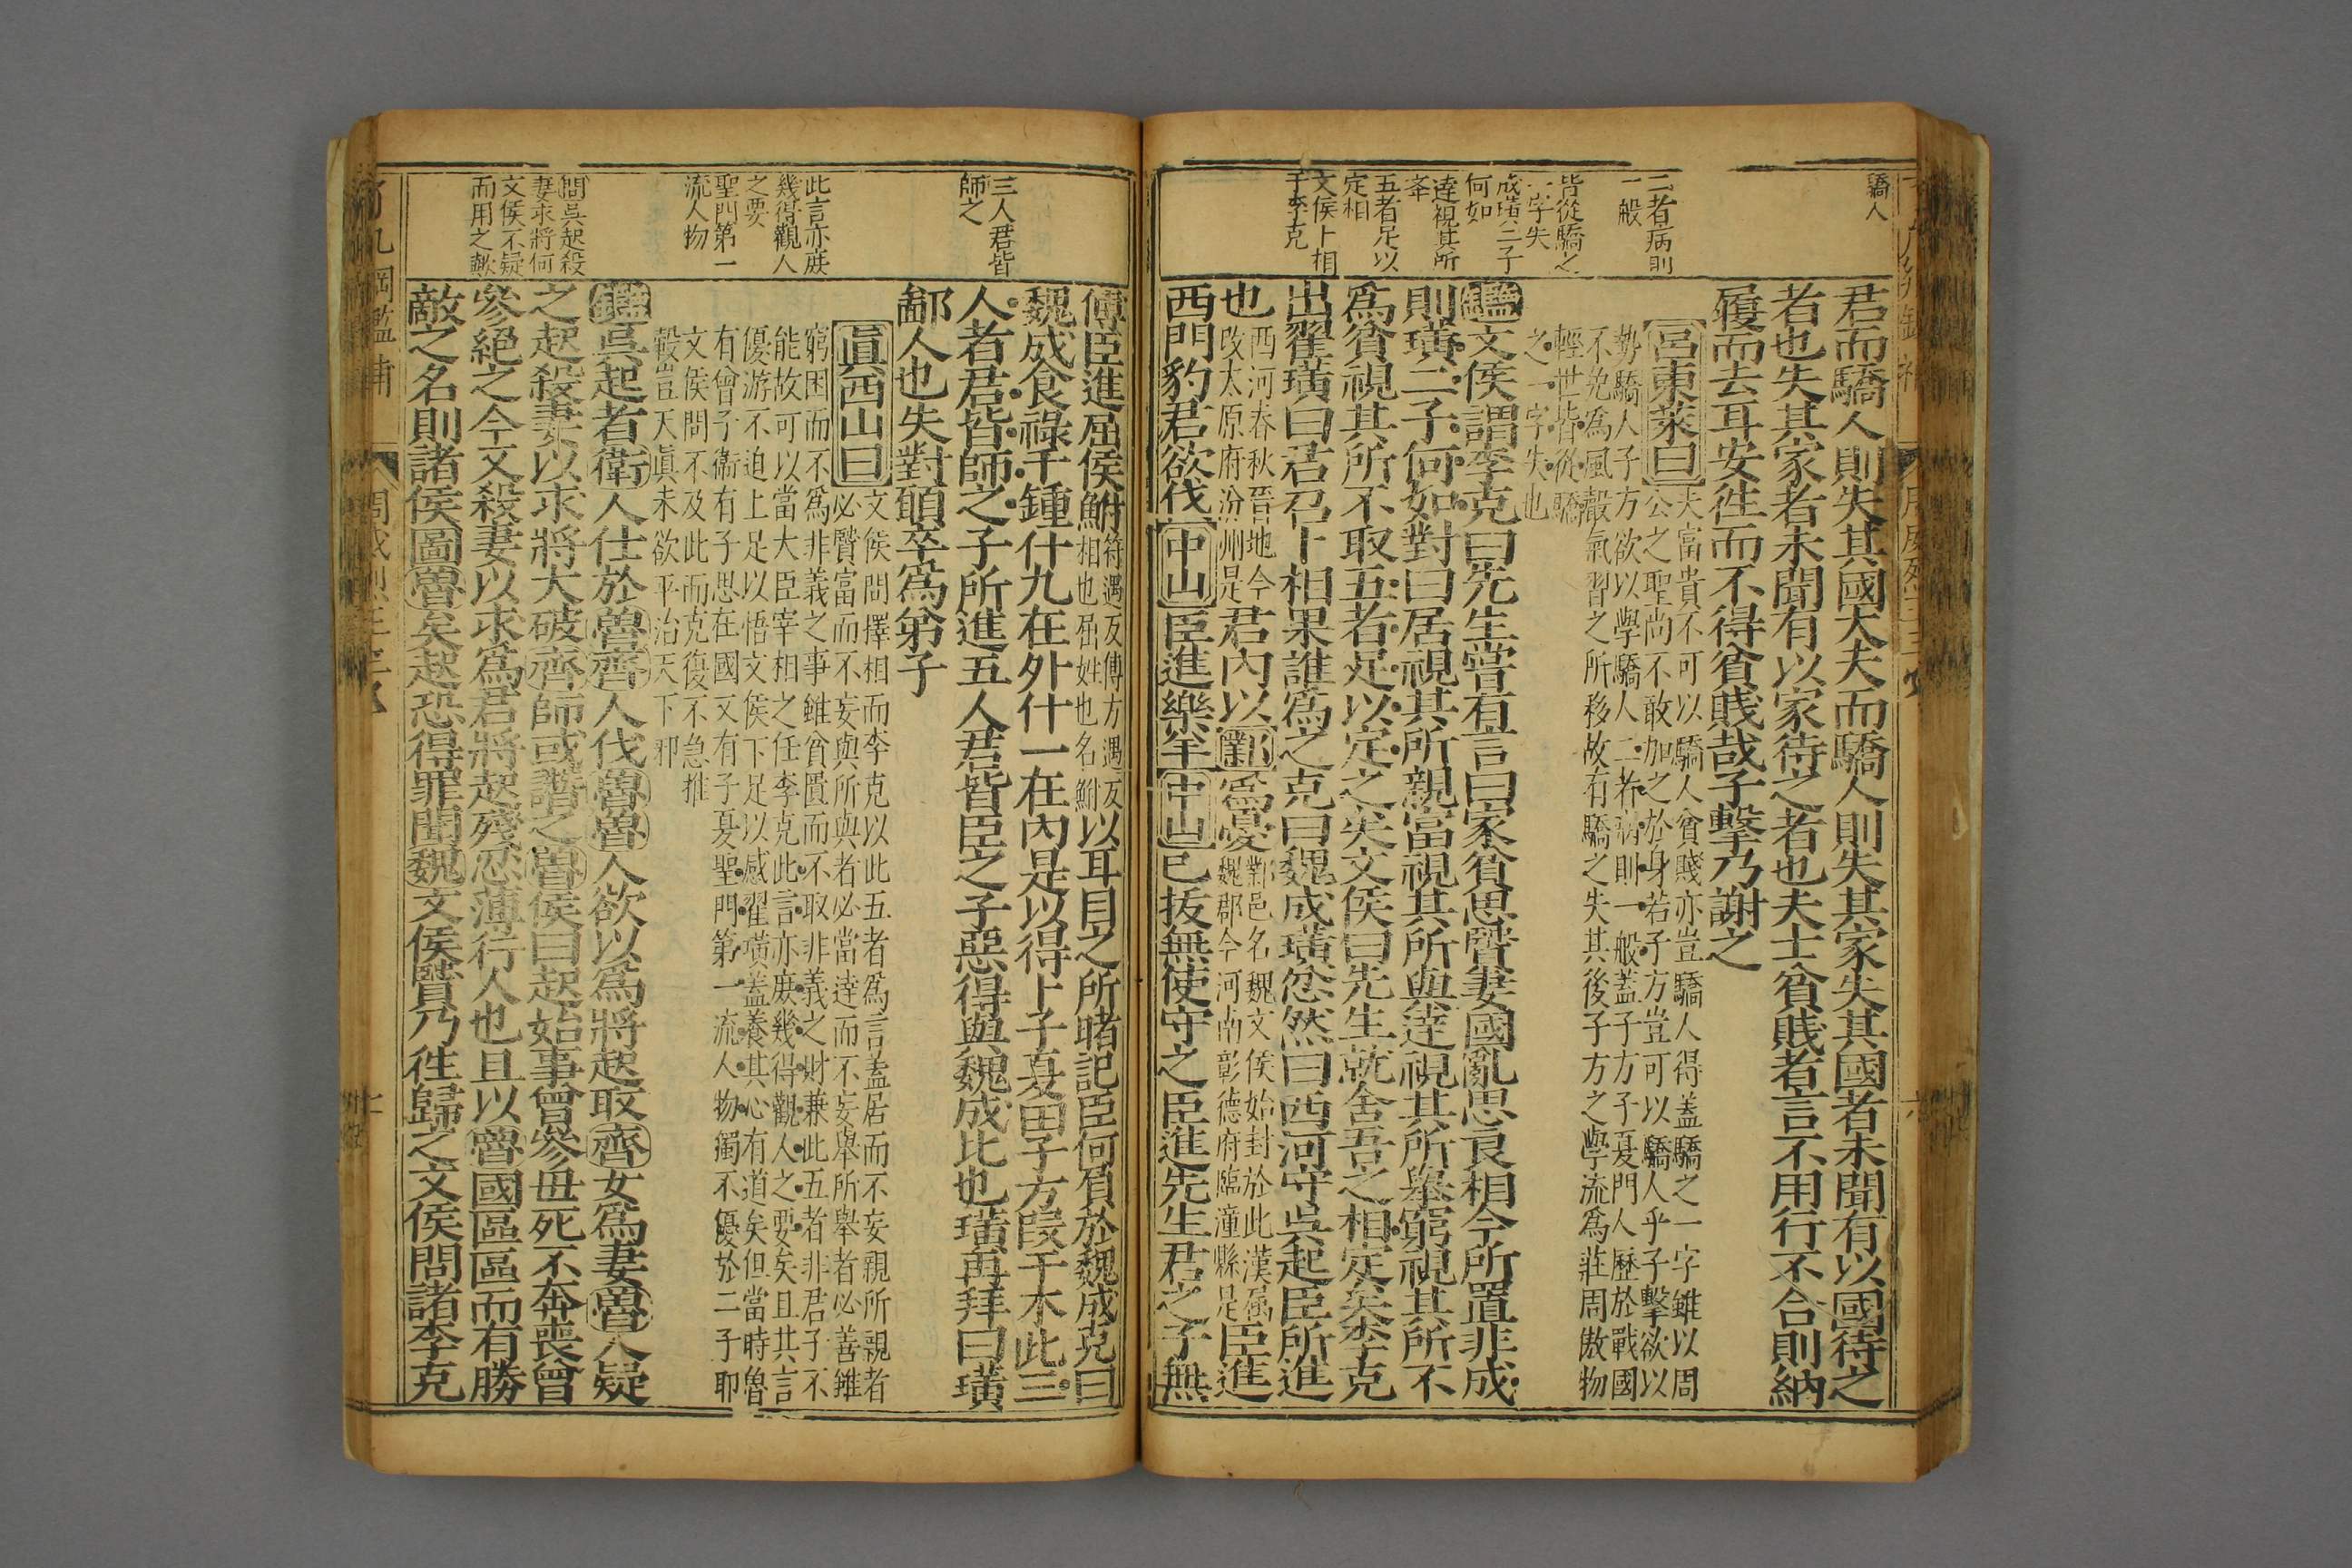 驕人
二者病則
一般
皆從驕之
一字失
成璜二子
何如
達視其所
舉
五者足以
定相
文侯卜相
于李克
君而驕人則失其國大夫而驕人則失其家失其國者未聞有以國待之
者也失其家者未聞有以家待之者也夫士貧賤者言不用行不合則納
履而去耳安徃而不得貧賤哉子擊乃謝之
呂東萊曰
夫富貴不可以驕人貧賤亦豈驕人得蓋驕之一字雖以周
公之聖尚不敢加之於身若子方豈可以驕人乎子擊欲以
勢驕人子方欲以學驕人二者病則一般蓋子方子夏門人歷於戰國
不免爲風聲氣習之所移故有驕之失其後子方之學流爲莊周傲物
輕世皆從驕
之一字失也
鑑文侯謂李克曰先生嘗有言曰家貧思賢妻國亂思良相今所置非成
則璜二子何如對曰居視其所親富視其所與達視其所舉窮視其所不
爲貧視其所不取五者足以定之矣文侯曰先生就舍吾之相定矣李克
出翟璜曰君召卜相果誰爲之克曰魏成璜忿然曰西河守吳起臣所進
也
西河春秋晉地今
改太原府汾州是
君內以鄴爲憂
鄴邑名魏文侯始封於此漢屬
魏郡今河南彰德府臨潼縣是
臣進
西門豹君欲伐中山臣進樂羊中山已拔無使守之臣進先生君之子無
三人君皆
師之
此言亦庻
幾得觀人
之要
聖門第一
流人物
問吳起殺
妻求將何
文侯不疑
而用之歟
傅臣進屈侯鮒
符遇反傅方遇反
相也屈姓也名鮒
以耳目之所睹記臣何負於魏成克曰
魏成食祿千鍾什九在外什一在內是以得卜子夏田子方段干木此三
人者君皆師之子所進五人君皆臣之子惡得與魏成比也璜再拜曰璜
鄙人也失對願卒爲弟子
眞西山曰
文侯問擇相而李克以此五者爲言蓋居而不妄親所視者
必賢富而不妄與所與者必當達而不妄舉所舉者必善雖
窮困而不爲非義之事雖貧匱而不取非義之財兼此五者非君子不
能故可以當大臣宰相之任李克此言亦庻幾得觀人之要矣且其言
優游不迫上足以悟文侯下足以感翟璜蓋養其心有道矣但當時魯
有曾子衞有子思在國又有子夏聖門第一流人物獨不優於二子耶
文侯問不及此而克復不急推
轂豈天眞未欲平治天下耶
鑑吳起者衛人仕於魯齊人伐魯魯人欲以爲將起取齊女爲妻魯人疑
之起殺妻以求將大破齊師或譖之魯侯曰起始事曾參毋死不奔喪曾
參絕之今又殺妻以求爲君將起殘忍薄行人也且以魯國區區而有勝
敵之名則諸侯圖魯矣起恐得罪聞魏文侯賢乃徃歸之文侯問諸李克